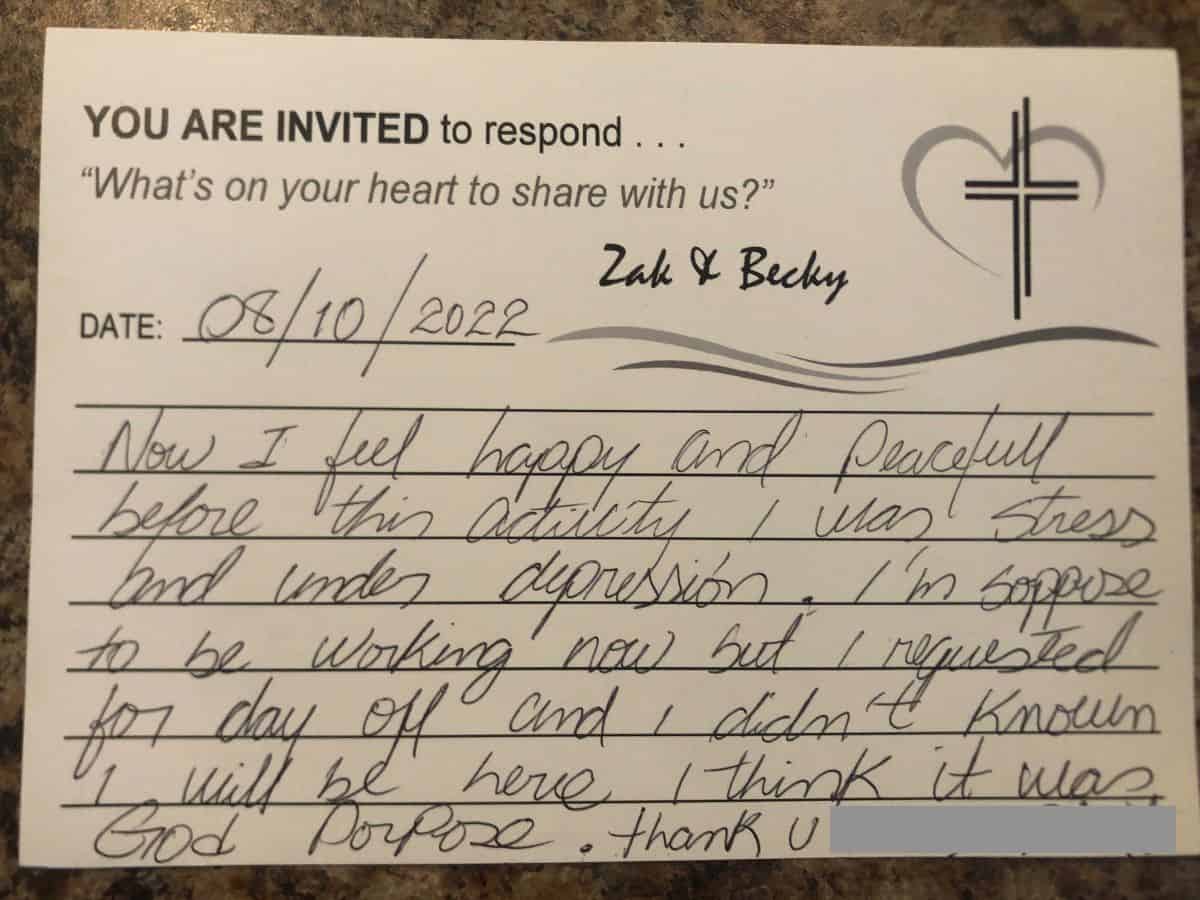 YOU ARE INVITED to respond . . .
“What’s on your heart to share with us?”
Zak & Becky
DATE: 08/10/2022
Now I feel happy and Peacefull
before this activity I was stress
and under depressión. I'm soppose
to be working now but I requested
for day off and I didn't Known
I will be here I think it was
God Porpose. thank U